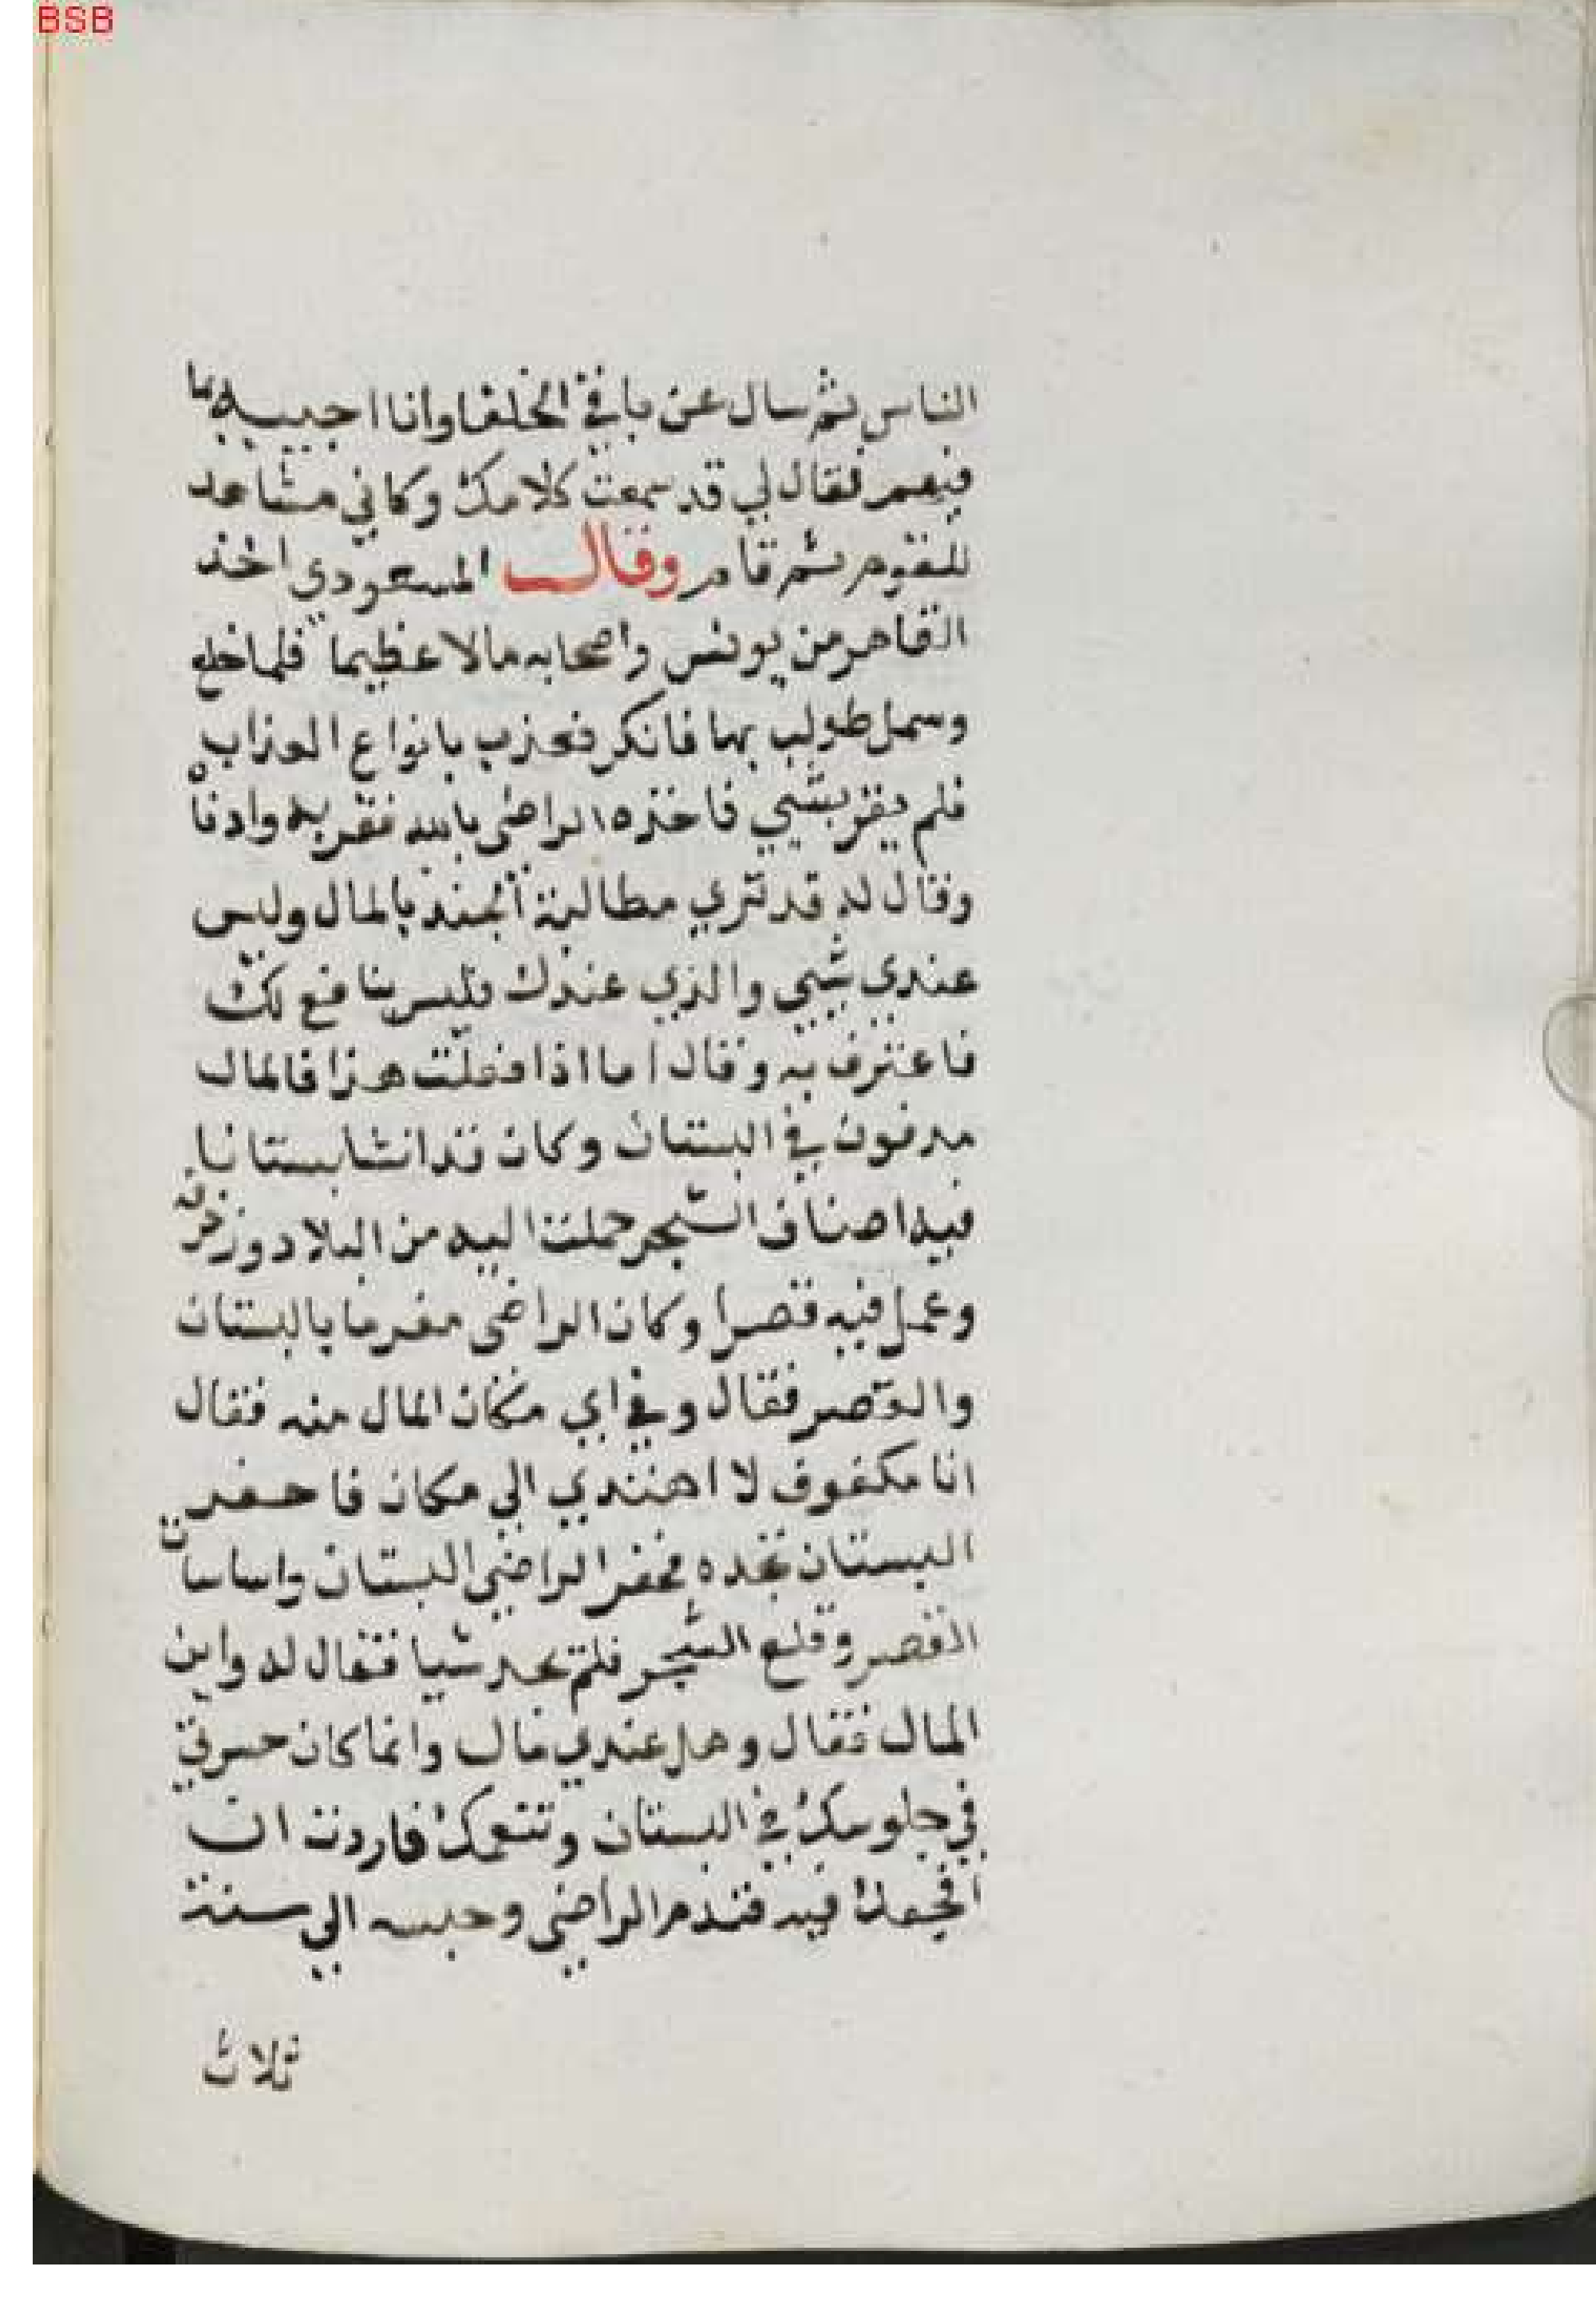 BSB
الناس ثم سال عن باقي الخلفا وانا اجيبه بما
فيهم فقال لي قد سمعت كلامك وكاني مشاهد
للقوم ثم قام وقال المسعودي اخذ
القاهر من يونس واصحابه مالا عظيما فلما خلع
وسمل طولب بها فانكر فعذب بانواع العذاب
فلم يقر بشي فاخذه الراضى بالله فقربه وادناه
وقال له قد تري مطالبة الجند بالمال وليس
عندي شي والذي عندك فليس بنافع لك
فاعترف به وقال اما اذا فعلت هذا فالمال
مدفون في البستان وكان قد انشا بستانا
فيه اصناف الشجر حملت اليه من البلاد وزخرفه
وعمل فيه قصرا وكان الراضى مغرما بالبستان
والقصر فقال وفي اي مكان المال منه فقال
انا مكفوف لا اهتدي الي مكان فاحفر
البستان تجده فحفر الراضي البستان واساسات
القصر وقلع الشجر فلم يجد شيا فقال له واين
المال فقال وهل عندي مال وانما كان حسرتي
في جلوسك في البستان وتنعمك فاردت ان
افجعك فيه فندم الراضي وحبسه الي سنة
ثلاث